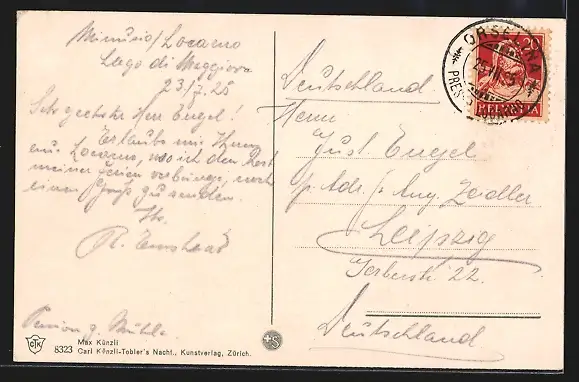 Minusio / Locarno
Lago di Maggiore
23/7.25
Sehr geehrter Herr Engel!
Erlaube mir Ihnen
aus Locarno, wo ich den Rest
meiner Ferien verbringe, noch
einen Gruß zu senden.
Ihr
R.
Pension z. Mühle
CTK
8323
Max Künzli
Carl Künzli-Tobler's Nachf., Kunstverlag, Zürich.
S
Deutschland
Herrn
Gust. Engel
p. Adr. Aug. Zeidler
Leipzig
Gerberstr. 22.
Deutschland
20
HELVETIA
ORSELINA